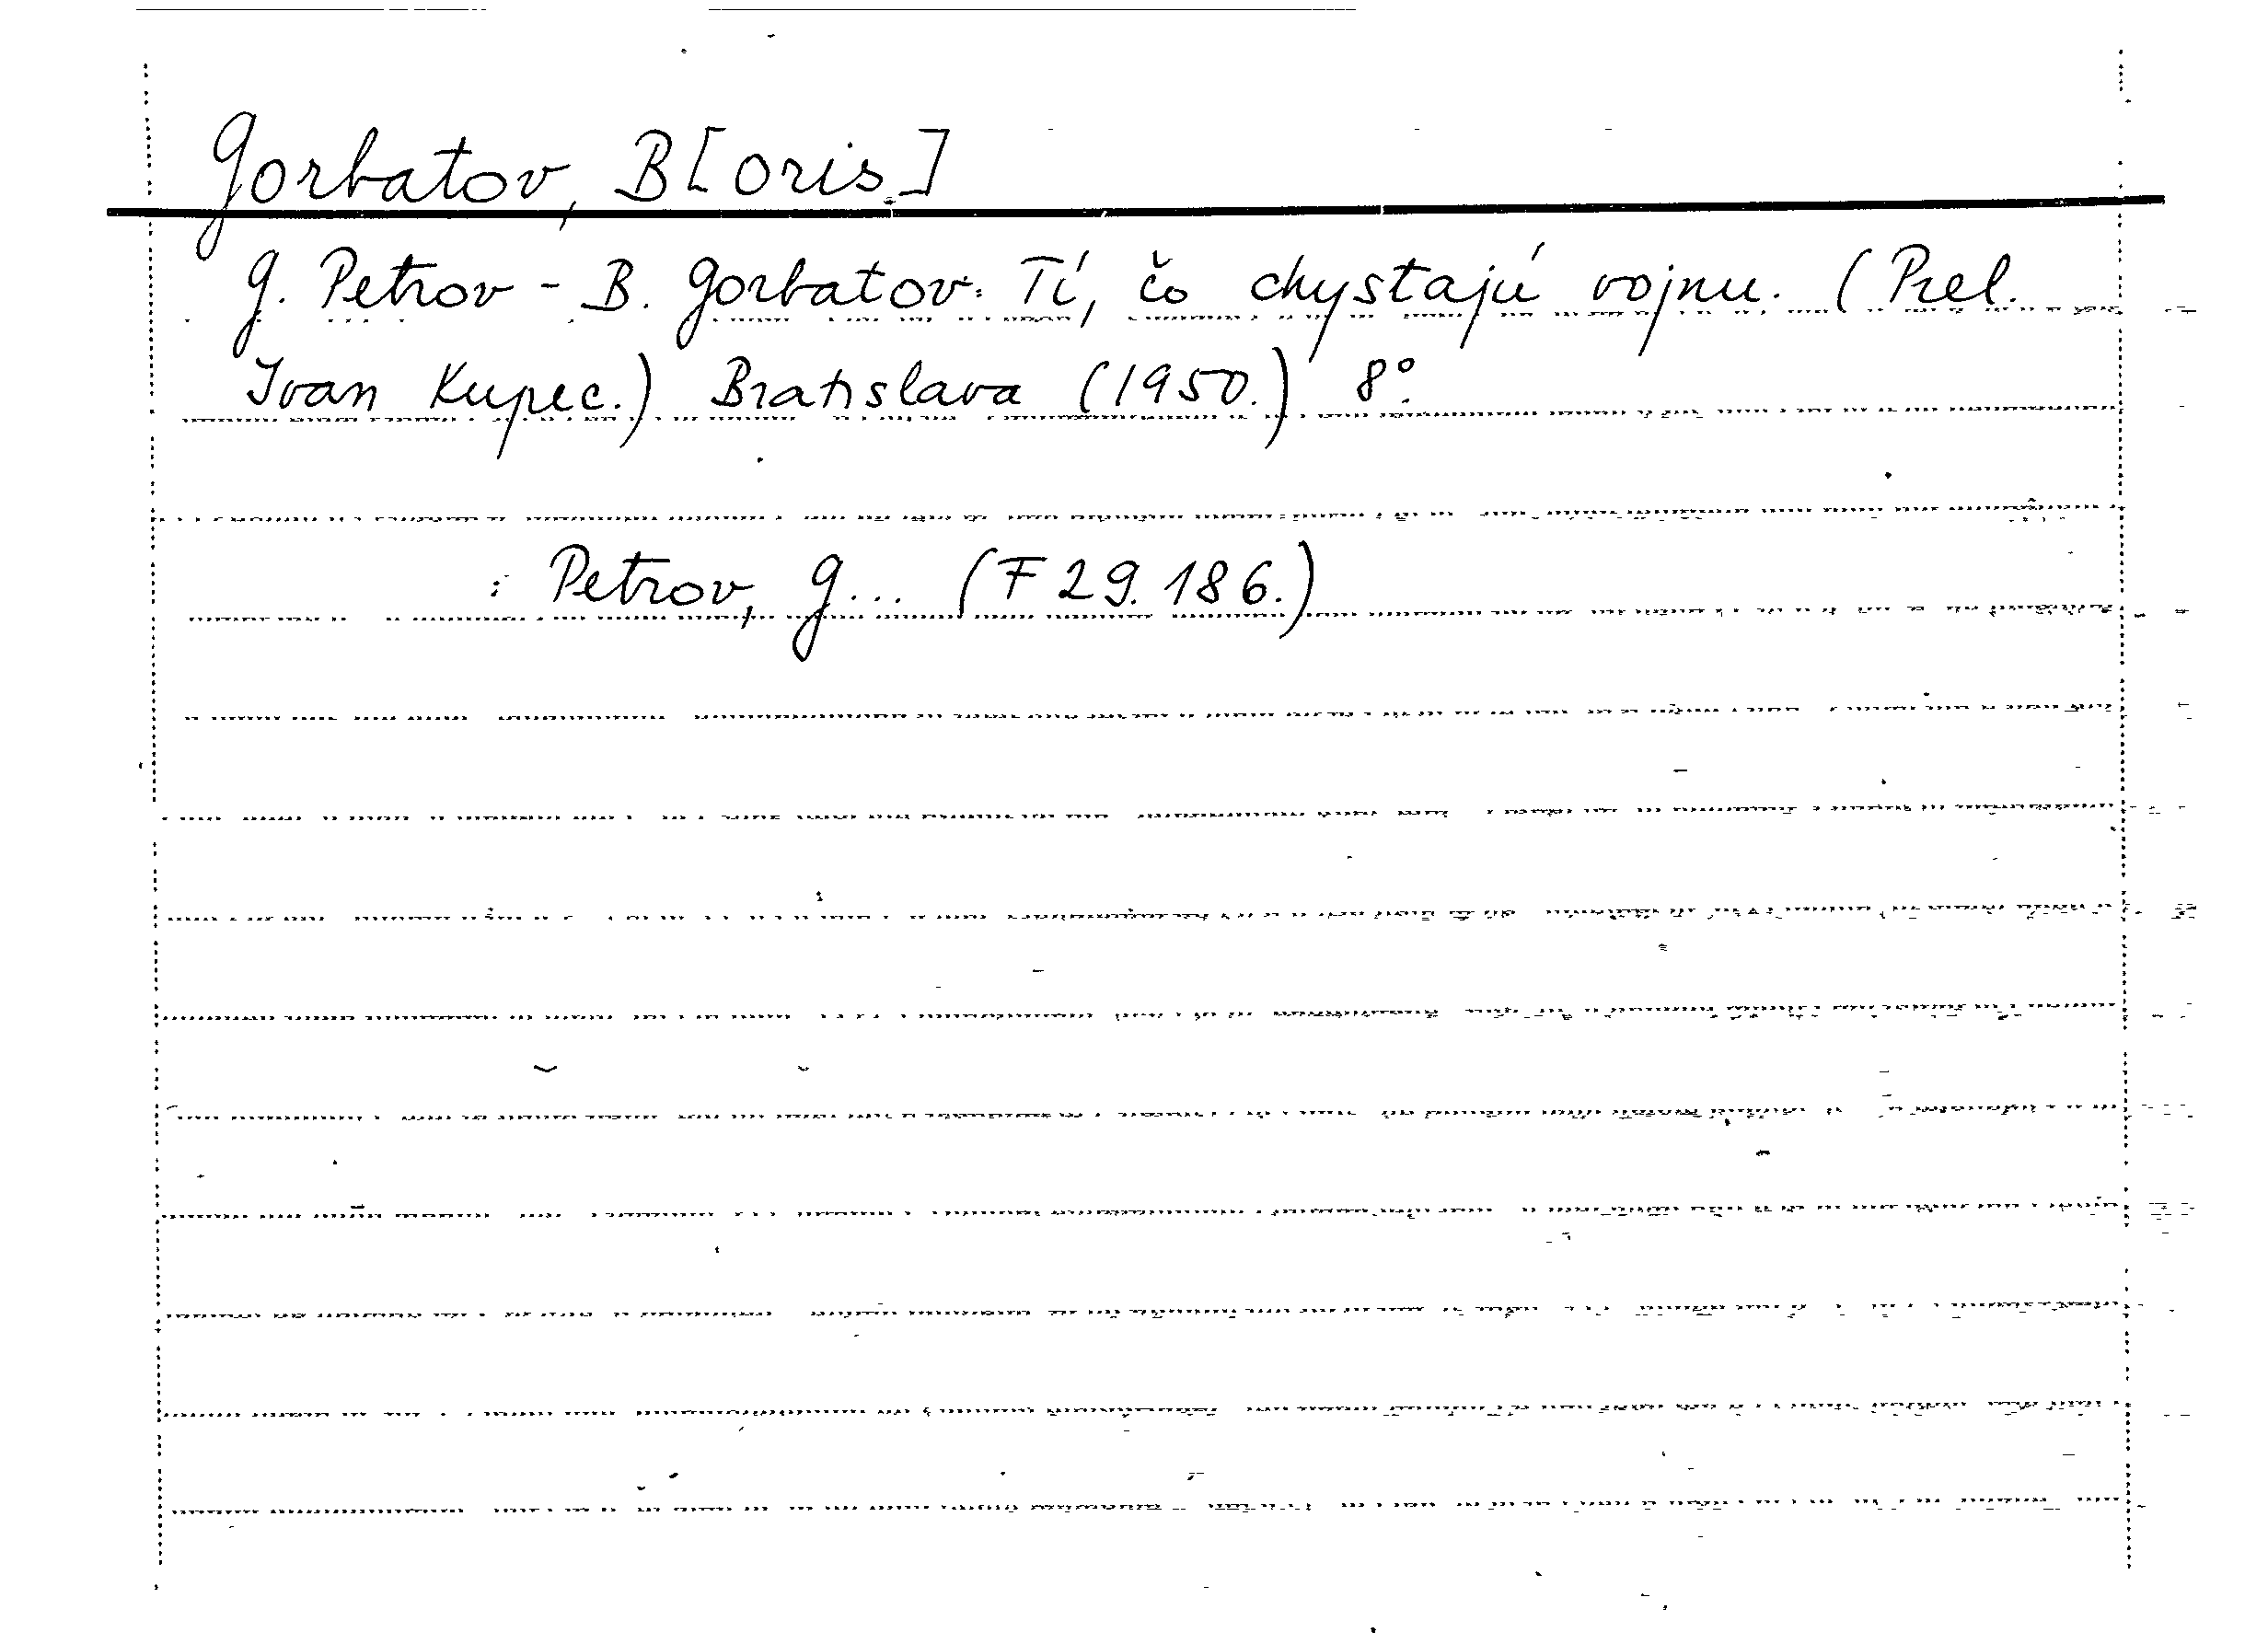 Gorbatov, B[oris.]
G. Petrov - B. Gorbatov: Tí, čo chystajú vojnu. (Prel.
Ivan Kupec.) Bratislava (1950.) 8°.
: Petrov, G... (F 29.186.)